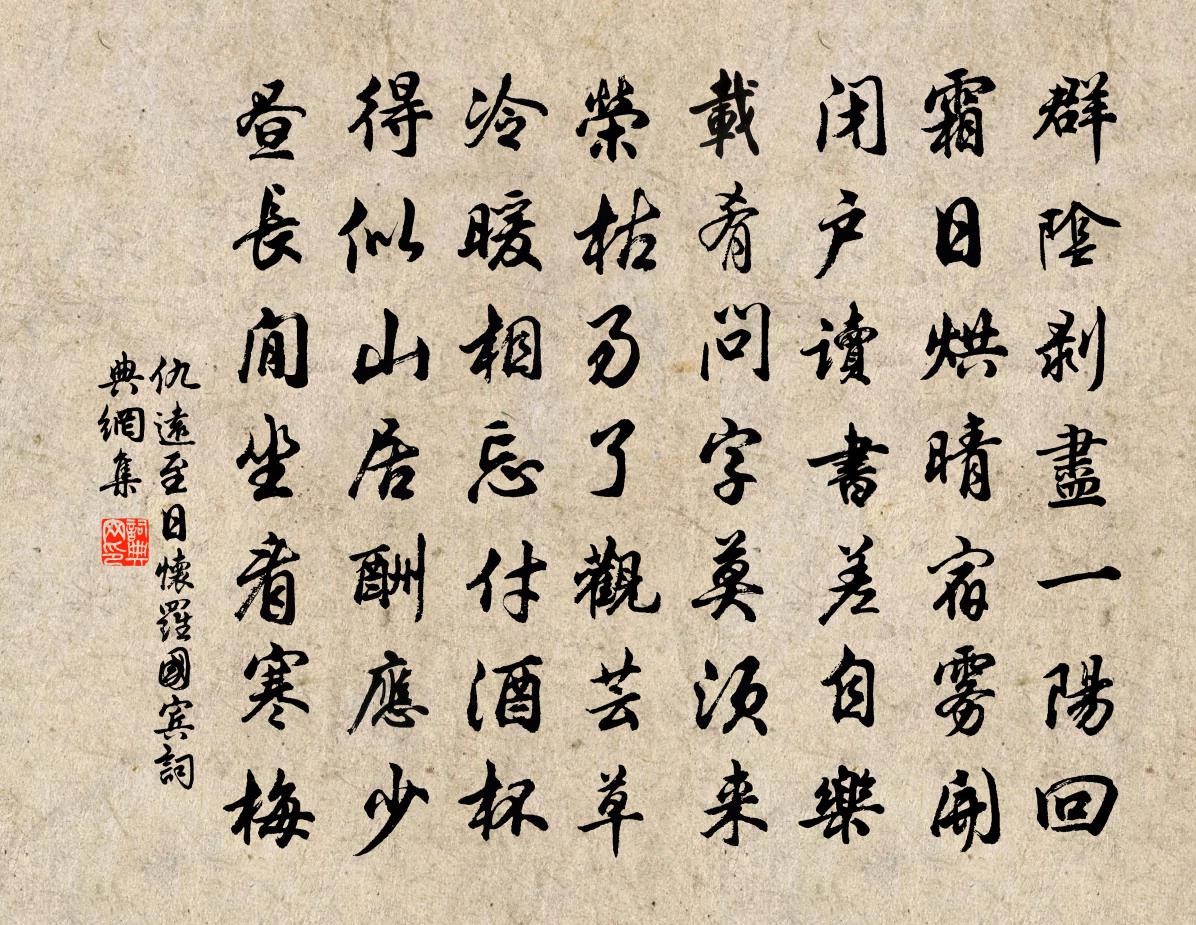 群陰剝盡一陽回
霜日烘晴宿霧開
閉戶讀書差自樂
載肴問字莫須来
榮枯易了觀芸草
冷暖相忘付酒杯
得似山居酬應少
昼長閒坐看寒梅
仇遠至日懷羅國賓詞
典網集
詞典網印